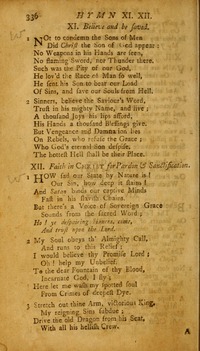 336 HYMN XI. XII.
XI. Believe and be saved.
1 NOT to condemn the Sons of Men
Did Christ the Son of God appear:
No Weapons in his Hands are seen,
No flaming Sword, nor Thunder there.
Such was the Pity of our God,
He lov'd the Race of Man so well,
He sent his Son to bear our Load
Of Sins, and save our Souls from Hell.
2 Sinners, believe the Saviour's Word,
Trust in his mighty Name, and live;
A thousand Joys his Lips afford,
His Hands a thousand Blessings give.
But Vengeance and Damnation lies
On Rebels, who refuse the Grace;
Who God's eternal Son despise,
The hottest Hell shall be their Place.
XII. Faith in Christ for Pardon & Sanctification.
1 HOW sad our State by Nature is!
Our Sin, how deep it stains!
And Satan binds our captive Minds
Fast in his slavish Chains.
But there's a Voice of Sovereign Grace
Sounds from the sacred Word;
Ho! ye despairing Sinners, come,
And trust upon the Lord.
2 My Soul obeys th' Almighty Call,
And runs to this Relief;
I would believe thy Promise Lord;
Oh! help my Unbelief.
To the dear Fountain of thy Blood,
Incarnate God, I fly;
Here let me wash my spotted Soul
From Crimes of deepest Dye.
3 Stretch out thine Arm, victorious King,
My reigning Sins subdue;
Drive the old Dragon from his Seat,
With all his hellish Crew.
A